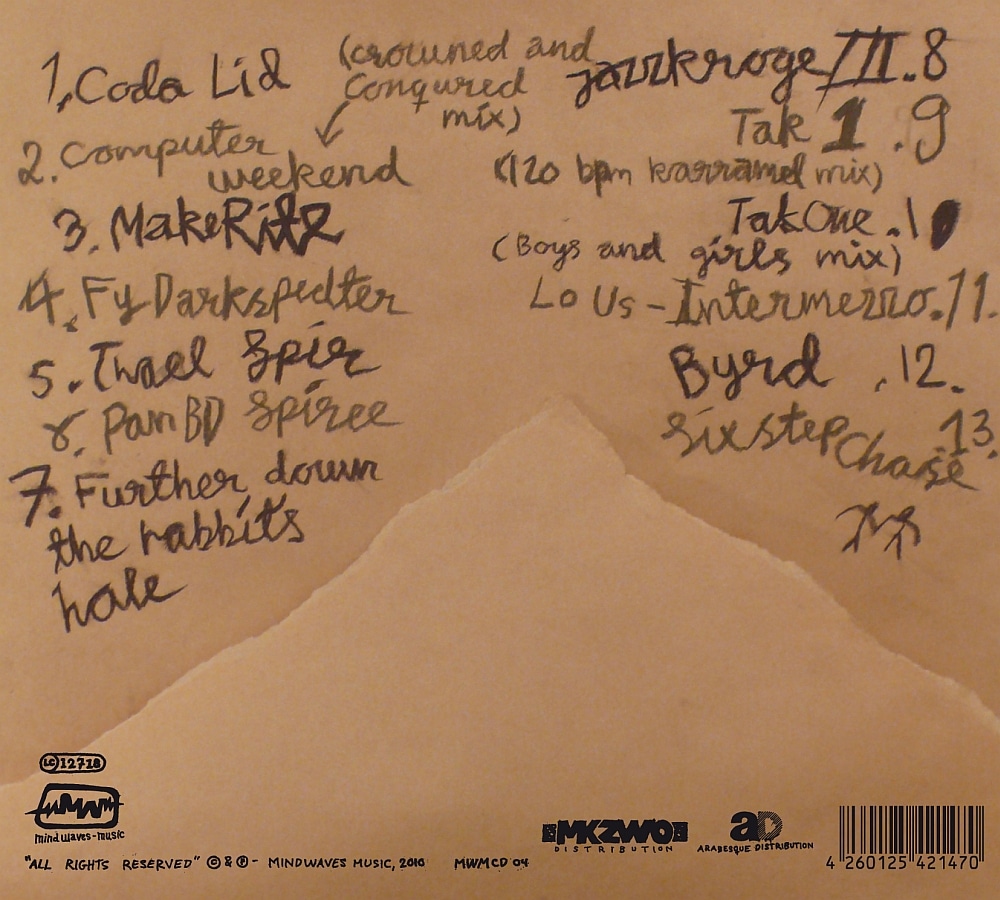 1. Coda Lid
(crowned and
Conqured
mix)
2. Computer
weekend
3. MakeRitz
4. FyDarkspedter
5. Twael Spir
6. PamBD Spiree
7. Further down
the rabbits
hole
jazzkroge III.8
Tak 1 .9
(120 bpm karramel mix)
TakOne .10
(Boys and girls mix)
Lo Us - Intermezzo.11.
Byrd .12.
Sixstep 13.
Chase
LC 12718
mind waves-music
"ALL RIGHTS RESERVED" © & ℗ - MINDWAVES MUSIC, 2010 MWMCD 04
MKZWO
DISTRIBUTION
aD
ARABESQUE DISTRIBUTION
4 260125 421470